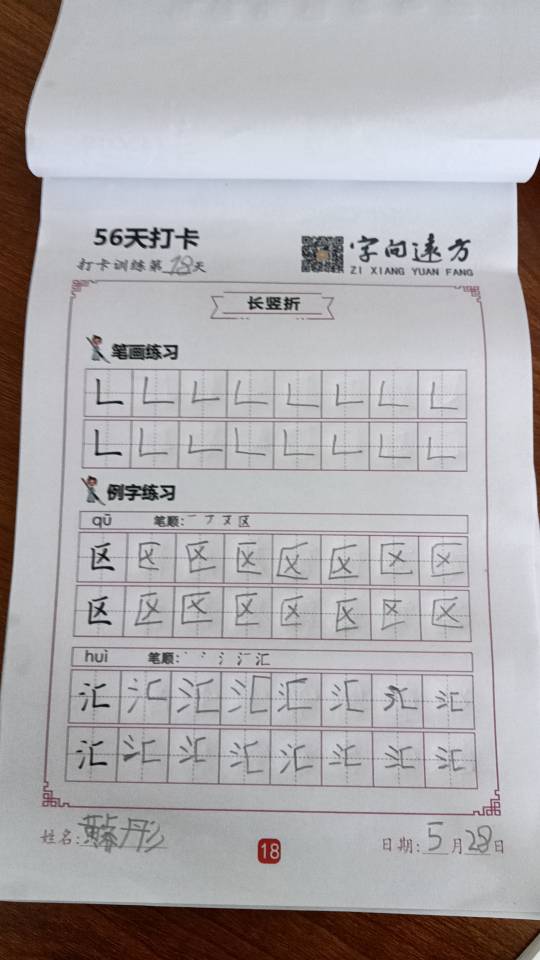 56天打卡
打卡训练第18天
字向远方
ZI XIANG YUAN FANG
长竖折
笔画练习
𠃊 𠃊 𠃊 𠃊 𠃊 𠃊 𠃊 𠃊
𠃊 𠃊 𠃊 𠃊 𠃊 𠃊 𠃊 𠃊
例字练习
qū 笔顺: 一 丆 又 区
区 区 区 区 区 区 区 区
区 区 区 区 区 区 区 区
huì 笔顺: 丶 冫 氵 汇 汇
汇 汇 汇 汇 汇 汇 汇 汇
汇 汇 汇 汇 汇 汇 汇 汇
姓名: 丹彤
18
日期: 5月28日